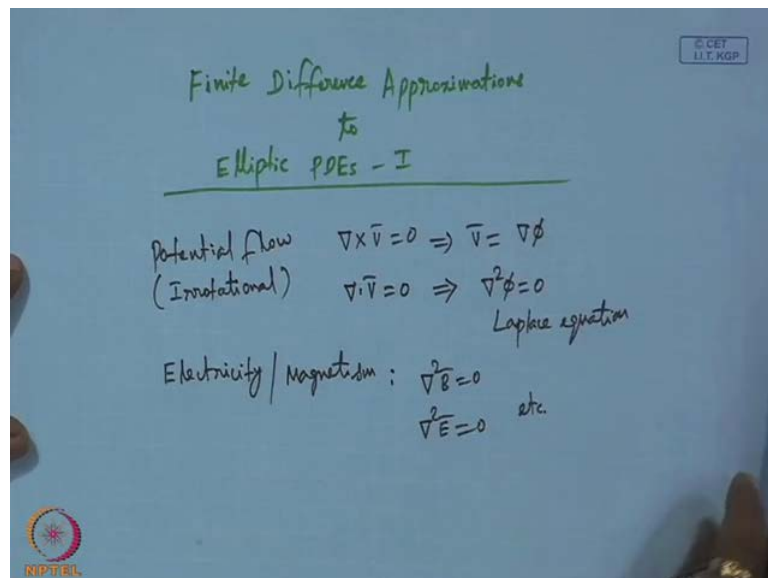 © CET
I.I.T. KGP
Finite Difference Approximations
to
Elliptic PDEs - I
Potential flow ∇×V̄=0 ⇒ V̄= ∇φ
(Irrotational) ∇·V̄=0 ⇒ ∇²φ=0
Laplace equation
Electricity / Magnetism : ∇²B̄=0
∇²Ē=0 etc.
NPTEL